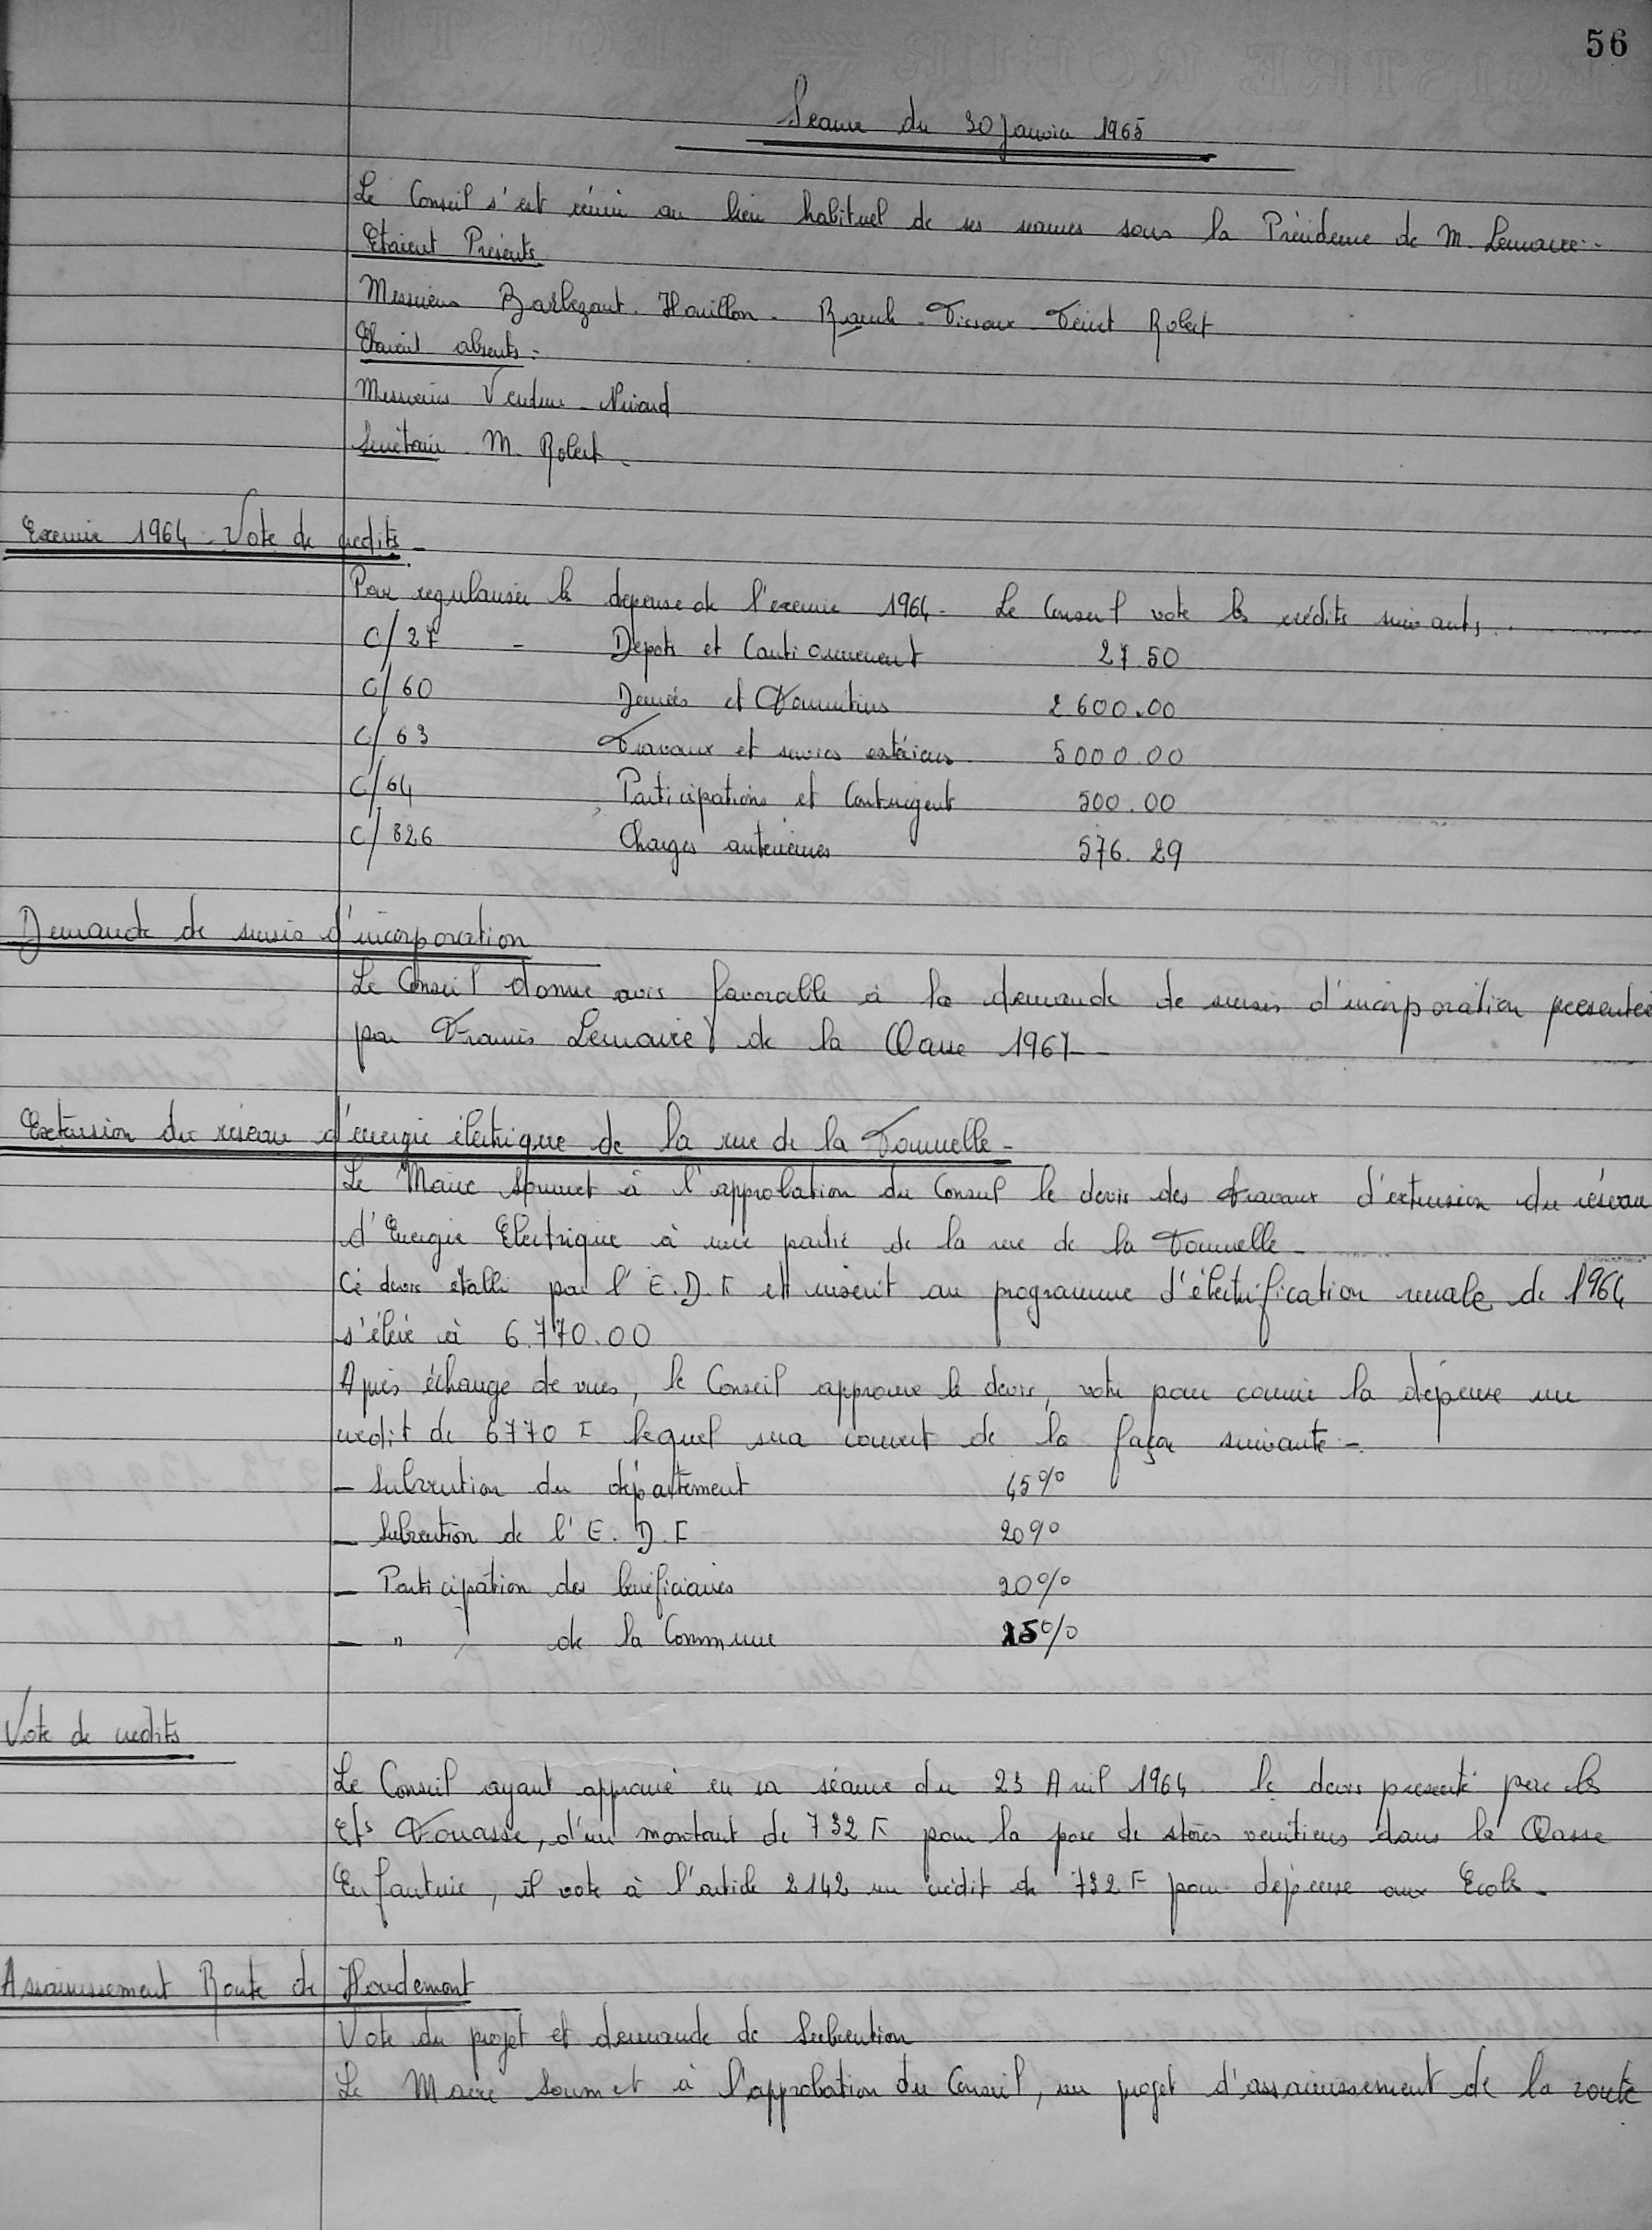 56
Séance du 30 Janvier 1965
Le Conseil s'est réuni au lieu habituel de ses séances sous la Présidence de M. Lemaire.-
Etaient Présents.
Messieurs Barbezant. Houillon. Rauch. Tissoux Teinet Robert
Etaient absents:
Messieurs Nivard
Secrétaire. M. Robert.
Exercice 1964 - Vote de credits -
Pour regulariser les depense de l'exercice 1964 - Le Conseil vote les crédits suivants.
C/27 - Depots et Cautionnement 27.50
C/60 Denrées et Fournitures 2.600.00
C/63 Travaux et services extérieurs 5000.00
C/64 Participations et Contingent 500.00
C/826 Charges anterieures 576.29
Demande de sursis d'incorporation
Le Conseil donne avis favorable à la demande de sursis d'incorporation presentée
par Francis Lemaire de la Classe 1967 -
Extension du réseau d'énergie électrique de la rue de la Tournelle -
Le Maire soumet à l'approbation du Conseil le devis des travaux d'extension du réseau
d'Energie Electrique à une partie de la rue de la Tournelle -
Ce devis établi par l'E.D.F et inscrit au programme d'électrification rurale de 1964
s'élève à 6.770.00
Après échange de vues, le Conseil approuve le devis, vote pour couvrir la dépense un
credit de 6770 F lequel sera couvert de la façon suivante -.
- Subvention du département 45%
- Subvention de l'E.D.F 20%
- Participation des bénéficiaires 20%
- " de la Commune 15%
Vote de credits
Le Conseil ayant approuvé en sa séance du 23 Avril 1964 le devis presenté par les
Ets Fouasse, d'un montant de 732 F pour la pose de stores venitiens dans la Classe
Enfantine, il vote à l'article 2142 un crédit de 732 F pour dépense aux Ecoles -
Assainissement Route de Houdemont
Vote du projet et demande de Subvention
Le Maire Soumet à l'approbation du Conseil, un projet d'assainissement de la route